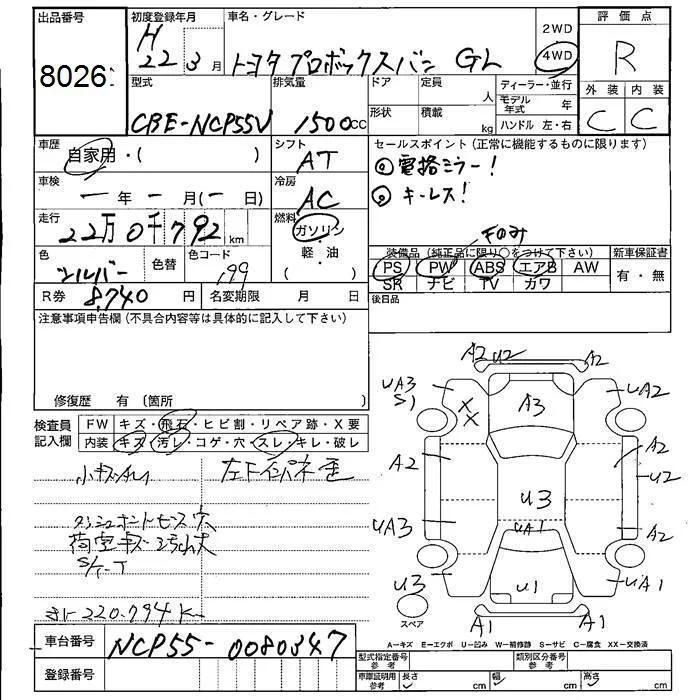 出品番号
8026
初度登録年月
H 22 3 月
車名・グレード
トヨタプロボックスバン GL
2WD
4WD
評価点
R
外装 内装
C C
型式
CBE-NCP55V
排気量
1500cc
ドア
形状
定員 人
積載 kg
ディーラー・並行
モデル年式 年
ハンドル 左・右
車歴
自家用・( )
シフト
AT
セールスポイント(正常に機能するものに限ります)
電格ミラー!
キーレス!
車検
一年 一月(一日)
冷房
AC
走行
22万0千792 km
燃料
ガソリン
・
軽・油
( )
色
シルバー
色替
色コード
199
Fのみ
装備品(純正品に限り○をつけて下さい)
PS PW ABS エアB AW
SR ナビ TV カワ
新車保証書
有・無
R券 8,740 円
名変期限 月 日
後日品
注意事項申告欄(不具合内容等は具体的に記入して下さい)
修復歴 有〔箇所 〕
検査員記入欄
FW キズ・飛石・ヒビ割・リペア跡・X要
内装 キズ・汚レ・コゲ・穴・スレ・キレ・破レ
小キズAU
ダッシュボードビス穴
荷室キズ
S/T
220.794 K
A2 U2 A2
UA3
S1
XX
A3
UA2
A2
A2
U2
U3
UA3
UA1
A2
U3
U1
UA1
スペア
A1 A1
A-キズ E-エクボ U-凹み W-補修跡 S-サビ C-腐食 XX-交換済
車台番号
NCP55-0080347
登録番号
型式指定番号 参考
類別区分番号 参考
車庫証明用 参考
長さ cm 幅 cm 高さ cm